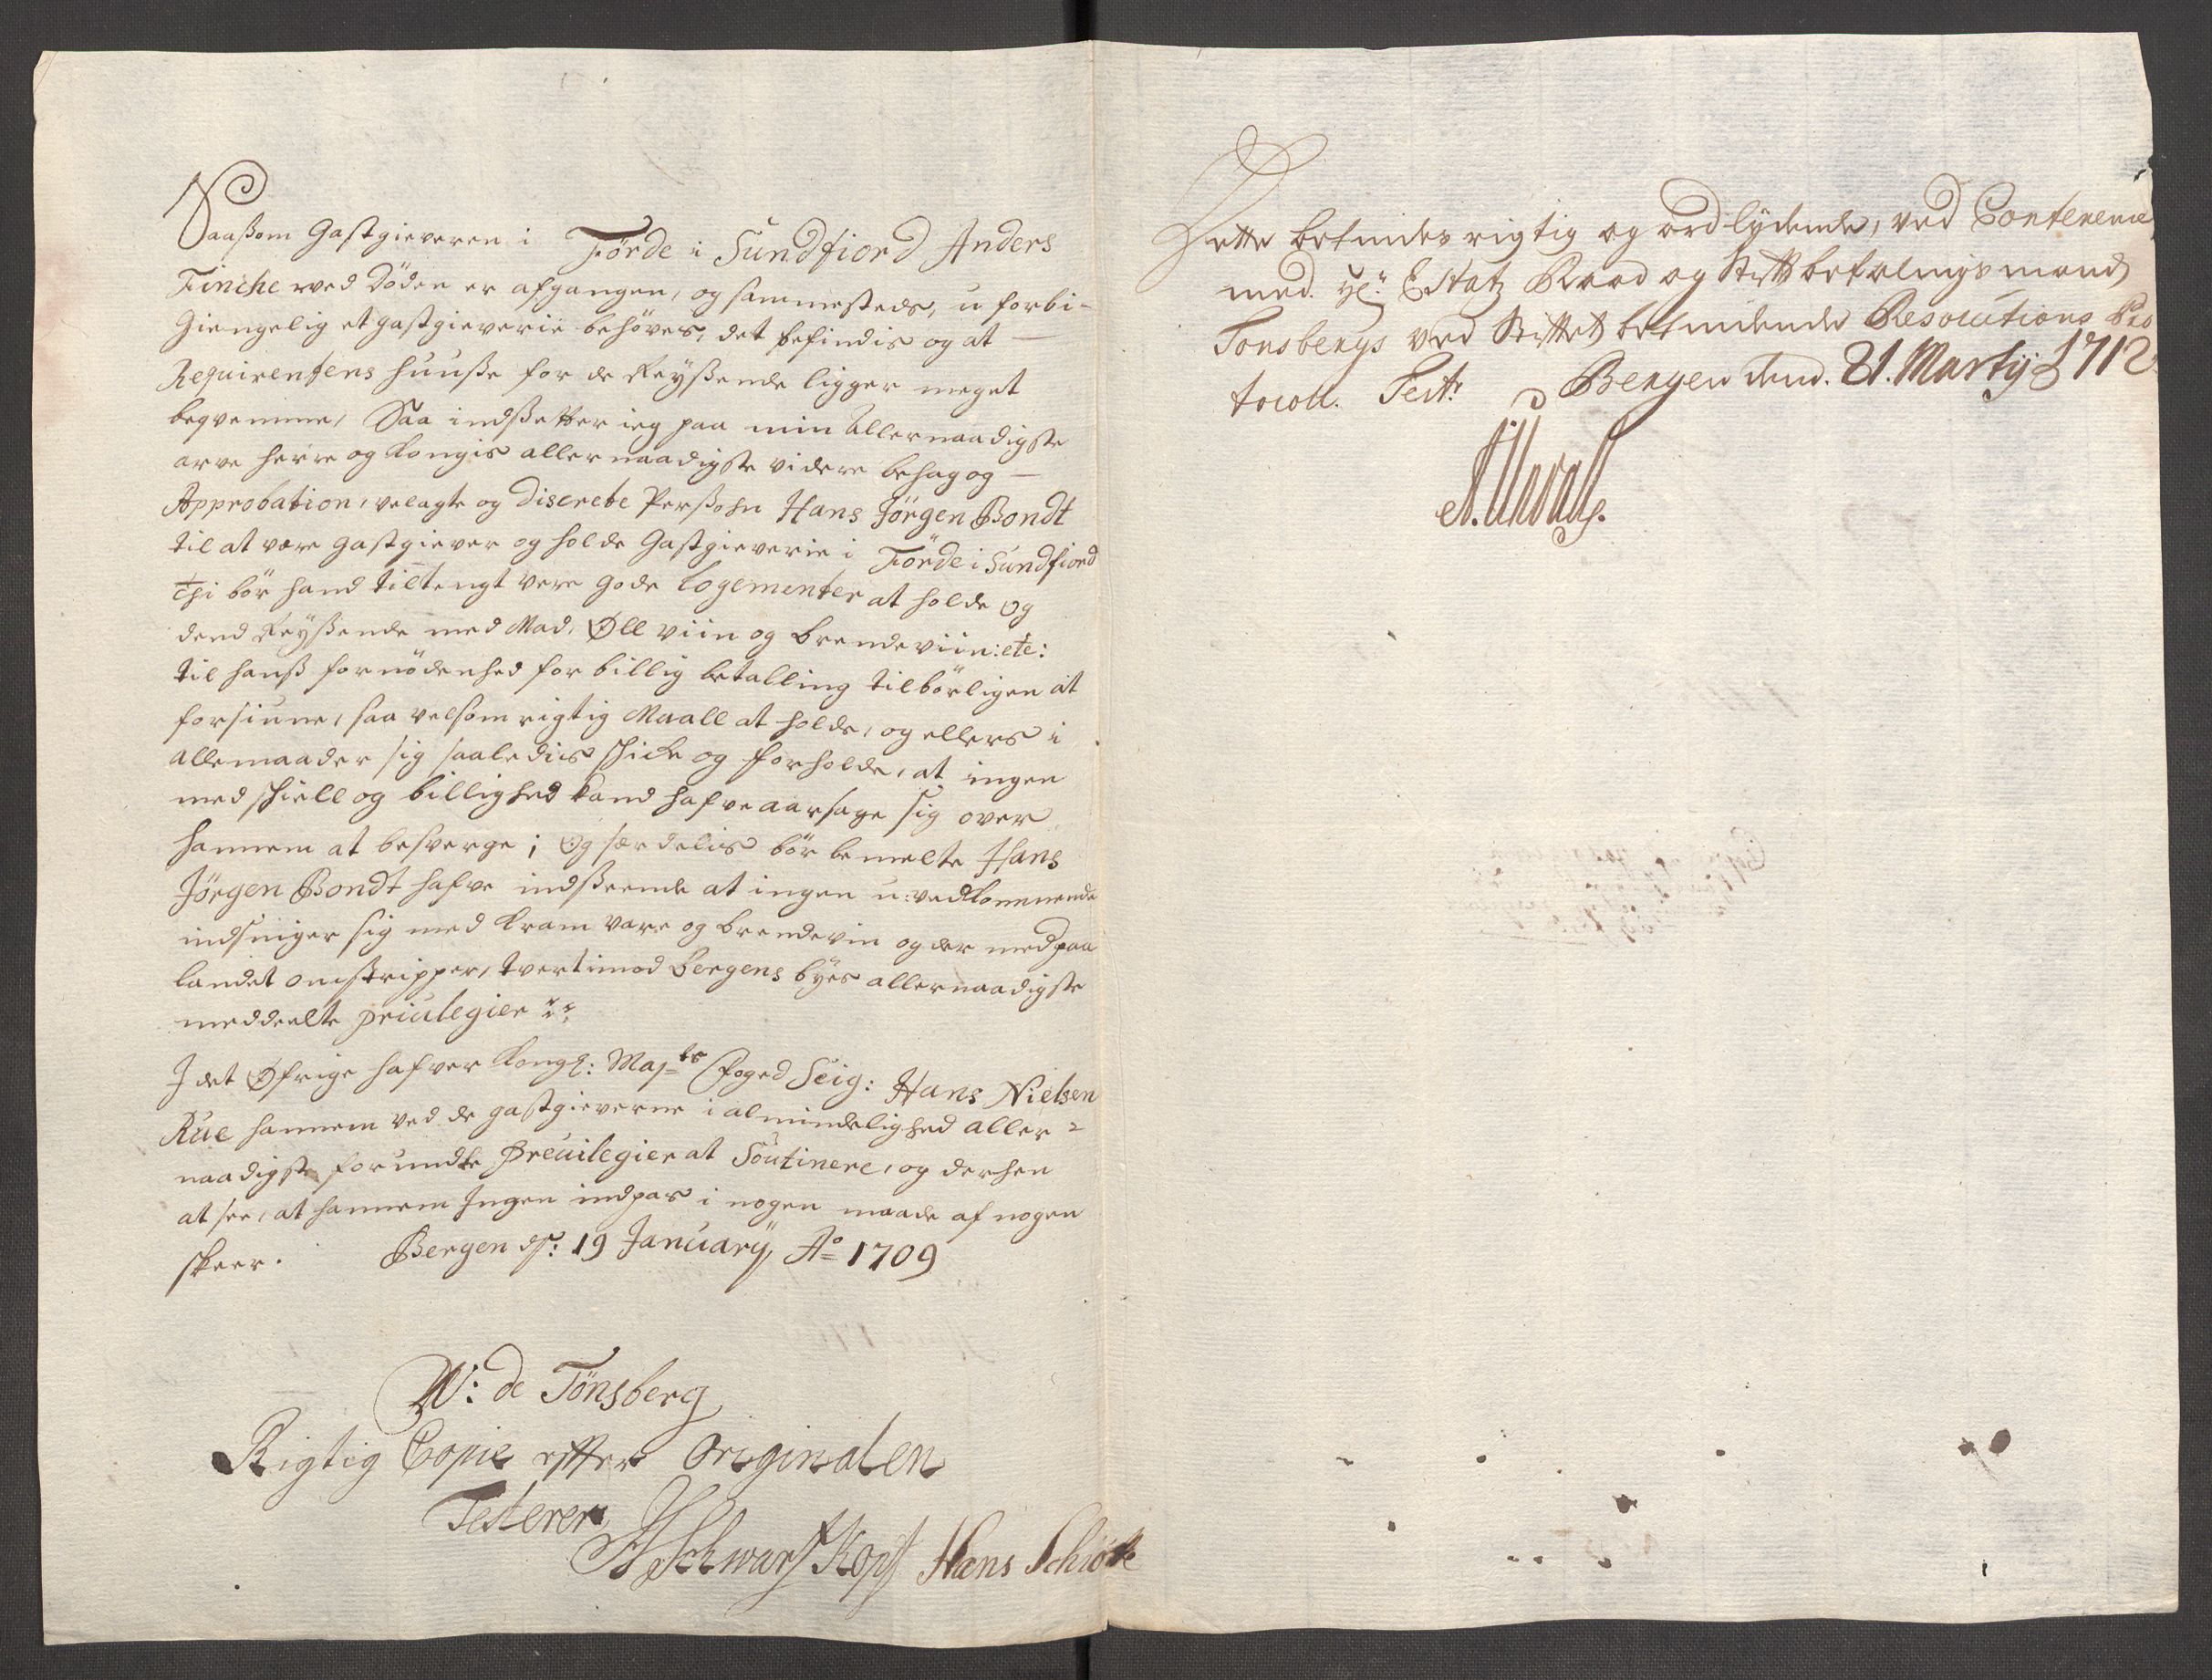 Saasom Gastgieveren i Førde i Sundfiord Anders
Finche ved Døden er afgangen, og sammesteds, u forbi-
Giengelig et gastgieverie behøves, det befindis og at
Requirentens huuse for de Reyßende ligger meget
beqvemme, Saa indsetter ieg paa min Allernaadigste
arve herre og Kongis allernaadigste videre behag og
Approbation, velagte og Discrete Perßohn Hans Jørgen Bondt
til at være gastgiever og holde Gastgieverie i Førde i Sundfiord
Thi bør hand tiltengt vere gode Logementer at holde og
dend Reyßende med Mad, Øll viin og brendeviin: etc:
til hanß fornødenhed for billig betalling tilbørligen at
forsiune, saa velsom rigtig Maall at holde, og ellers i
allemaader sig saaledis skicke og forholde, at ingen
med skiell og billighed kand hafve aarsage sig over
hannem at besverge; Og særdelis bør bemelte Hans
Jørgen Bondt hafve indseende at ingen u:vedkommende
indsniger sig med kram vare og brendevin og der med paa
landet omstripper, tvertimod Bergens byes allernaadigste
meddeelte priulegier
I det Øfrige hafver Kongl: Maj:ts Foged Seig: Hans Nielsen
Rue hannem ved de gastgieverne i almindelighed aller-
naadigste forundte Preuilegier at Soutinere, og derhen
at see, at hannem Ingen indpas i nogen maade af nogen
skeer. Bergen ds: 19 January Ao 1709
W: de Tønsberg
Rigtig Copie efter Originalen
Testerer
Schwartzkopf Hans Schiøtte
Dette befindes rigtig og ordlydende, ved Conference
med Hr: Estatz Raad og Stiftbefalingsmand
Tonsbergs ved Stiftet befindende Resolutions Pro
tocoll. Test: Bergen dend. 21. Martij 1712